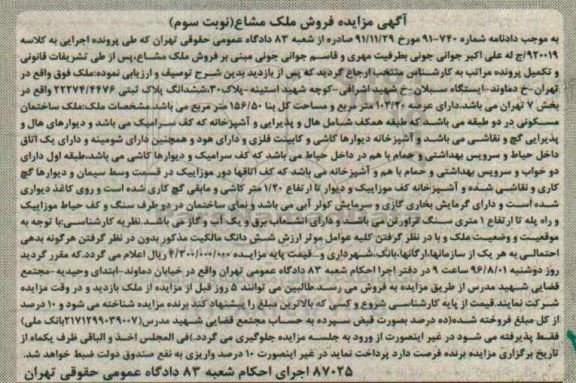 آگهی مزایده فروش ملک مشاع(نوبت سوم)
به موجب دادنامه شماره ۷۴۰-۹۱ مورخ ۹۱/۱۱/۲۹ صادره از شعبه ۸۳ دادگاه عمومی حقوقی تهران که طی پرونده اجرایی به کلاسه
۹۲۰۰۱۹/ج له علی اکبر جوانی جونی بطرفیت مهری و قاسم جوانی جونی مبنی بر فروش ملک مشاع،پس از طی تشریفات قانونی
و تکمیل پرونده مراتب به کارشناس منتخب ارجاع گردید که پس از بازدید بدین شرح توصیف و ارزیابی نموده:ملک فوق واقع در
تهران-خ دماوند-ایستگاه سبلان-خ شهید اشراقی-کوچه شهید استینه-پلاک۳۰،ششدانگ پلاک ثبتی ۲۲۲۷۴/۴۴۷۶ واقع در
بخش ۷ تهران می باشد.دارای عرصه ۱۰۲/۲۰ متر مربع و مساحت کل بنا ۱۵۶/۵۰ متر مربع می باشد.مشخصات ملک:ملک ساختمان
مسکونی در دو طبقه می باشد که طبقه همکف شامل هال و پذیرایی و آشپزخانه که کف سرامیک می باشد و دیوارهای هال و
پذیرایی گچ و نقاشی می باشد و آشپزخانه دیوارها کاشی و کابینت فلزی و دارای هود و همچنین دارای شومینه و دارای یک اتاق
داخل حیاط و سرویس بهداشتی و حمام با هم در داخل حیاط می باشد که کف سرامیک و دیوارها کاشی می باشد.طبقه اول دارای
دو خواب و سرویس بهداشتی و حمام با هم و آشپزخانه می باشد که کف اتاقها دور موزاییک در قسمت وسط سیمان و دیوارها گچ
کاری و نقاشی شده و آشپزخانه کف موزاییک و دیوار تا ارتفاع ۱/۲۰ متر کاشی و مابقی گچ کاری شده است و روی کاغذ دیواری
شده است و دارای گرمایش بخاری گازی و سرمایش کولر آبی می باشد و نمای ساختمان در دو طرف سنگ و کف حیاط موزاییک
و راه پله تا ارتفاع ۱ متری سنگ تراورتن می باشد و دارای انشعاب برق و یک آب و گاز می باشد. نظریه کارشناسی:با توجه به
موقعیت و وضعیت ملک و با در نظر گرفتن کلیه عوامل موثر ارزش شش دانگ مالکیت مذکور بدون در نظر گرفتن هرگونه بدهی
احتمالی به هر یک از سازمانها،ارگانها،بانک،شهرداری و...قیمت پایه مزایده ۴/۳۰۰/۰۰۰/۰۰۰ ریال اعلام می گردد.که مقرر گردید
روز دوشنبه ۹۶/۸/۰۱ ساعت ۹ در دفتر اجرا احکام شعبه ۸۳ دادگاه عمومی تهران واقع در خیابان دماوند-ابتدای وحیدیه-مجتمع
قضایی شهید مدرس از طریق مزایده به فروش می رسد.طالبین می توانند ۵ روز قبل از مزایده از ملک بازدید و در وقت مزایده
شرکت نمایند.قیمت از پایه کارشناسی شروع و کسی که بالاترین مبلغ را پیشنهاد کند برنده مزایده شناخته می شود و ۱۰ درصد
از کل مبلغ فروخته شده(ده درصد بصورت قبض سپرده به حساب مجتمع قضایی شهید مدرس(۲۱۷۱۲۹۹۰۳۹۰۰۷بانک ملی)
فقط پذیرفته می شود در غیر اینصورت از ورود به جلسه مزایده جلوگیری می گردد.)فی المجلس اخذ و الباقی ظرف یکماه از
تاریخ برگزاری مزایده برنده فرصت دارد پرداخت نماید در غیر اینصورت ۱۰ درصد واریزی به نفع صندوق دولت ضبط خواهد شد.
۸۷۰۲۵ اجرای احکام شعبه ۸۳ دادگاه عمومی حقوقی تهران